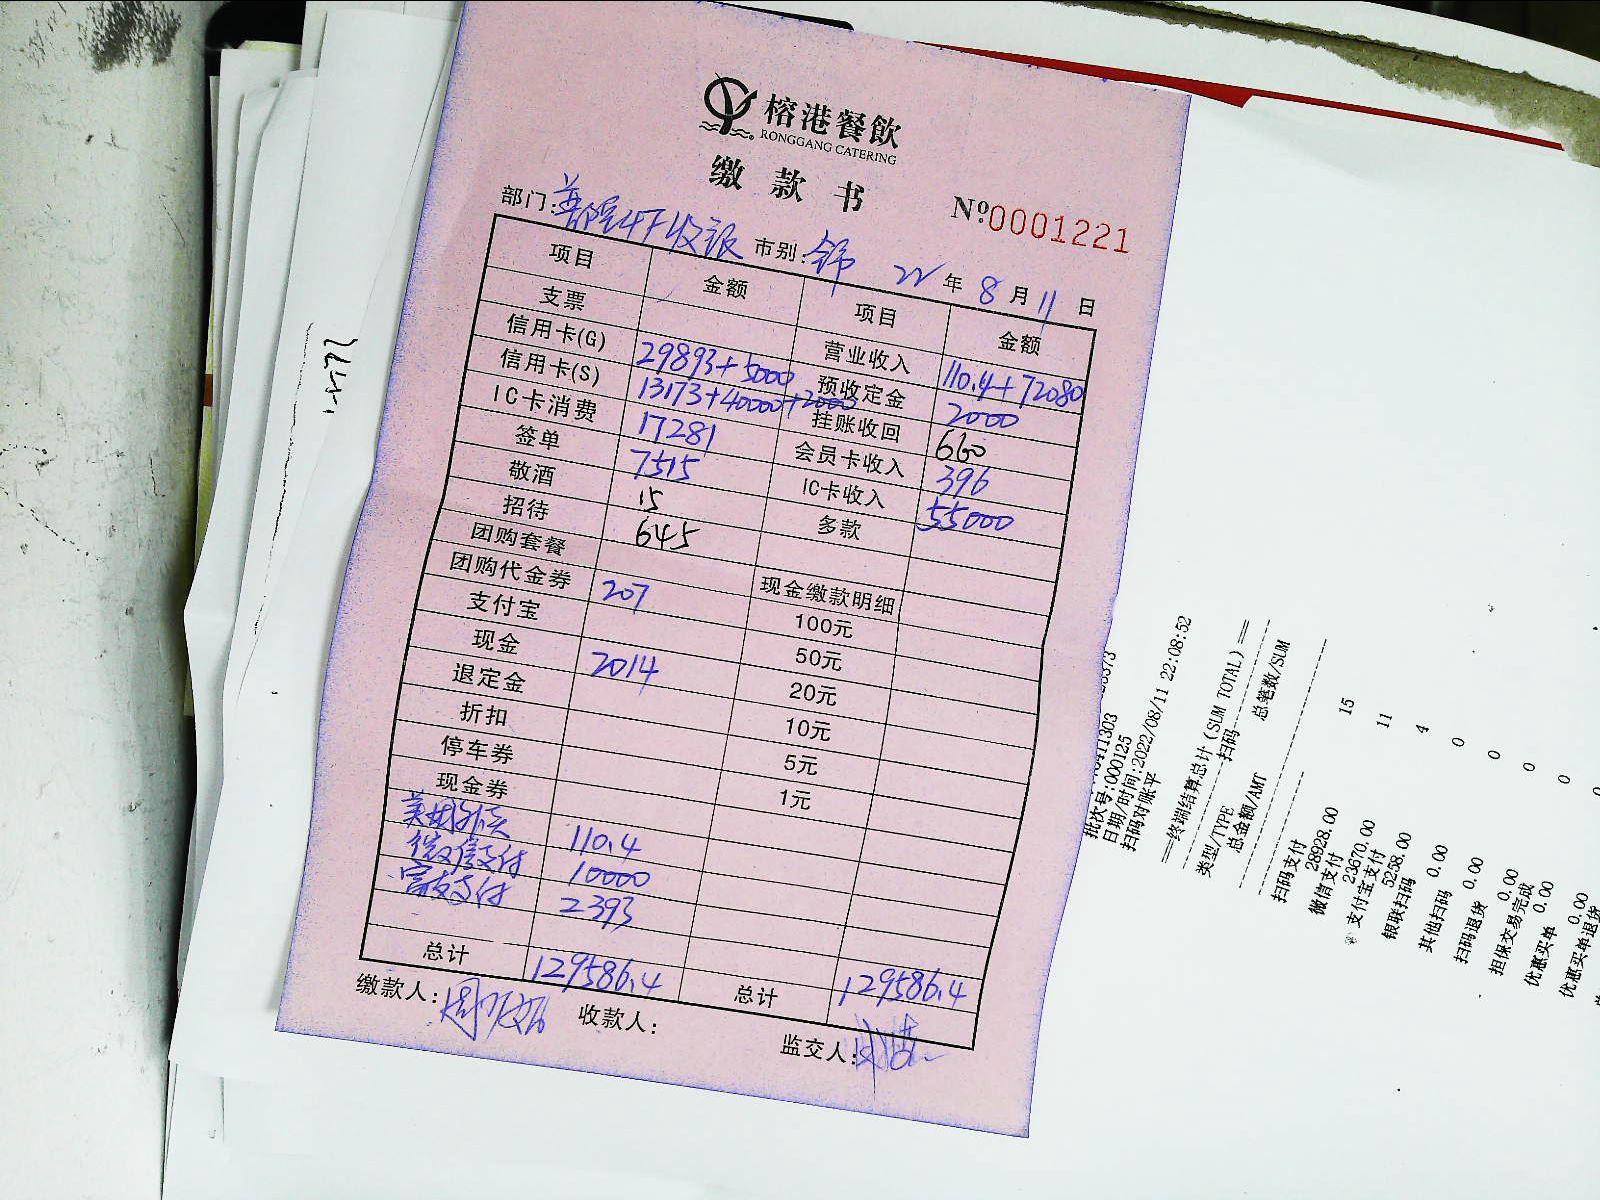 榕港餐飲
RONGGANG CATERING
缴款书
№0001221
部门: 收银 市别: 22年8月11日
项目 金额 项目 金额
支票 营业收入 110.4+72080
信用卡(G) 29893+5000 预收定金 2000
信用卡(S) 13173+40000+2000 挂账收回 660
IC卡消费 17281 会员卡收入 396
签单 7515 IC卡收入 55000
敬酒 15 多款
招待 645
团购套餐 现金缴款明细
团购代金券 207 100元
支付宝 50元
现金 2014 20元
退定金 10元
折扣 5元
停车券 1元
现金券
美团外卖 110.4
微信支付 10000
富友支付 2393
总计 129586.4 总计 129586.4
缴款人: 收款人: 监交人:
批次号:000125
日期/时间:2022/08/11 22:08:52
扫码对账平
==终端结算总计(SUM TOTAL)==
类型/TYPE 扫码 总笔数/SUM
总金额/AMT
扫码支付 15
28928.00
微信支付 11
23670.00
支付宝支付 4
5258.00
银联扫码 0
0.00
其他扫码 0
0.00
扫码退货 0
0.00
担保交易完成 0
0.00
优惠买单 0
0.00
优惠买单退货